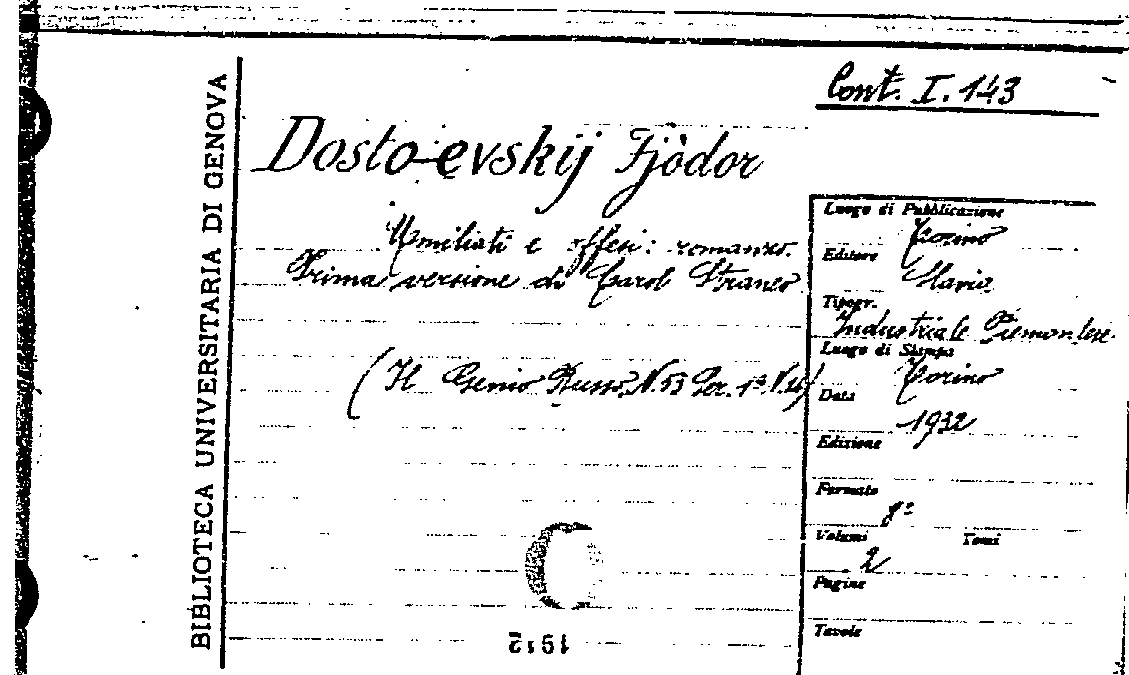 Cont. I. 143
BIBLIOTECA UNIVERSITARIA DI GENOVA
Dostoevskij Fjòdor
Umiliati e offesi: romanzo.
Prima versione di Carol Straneo
(Il Genio Russo, N. 53 Ser. 1ª
Luogo di Pubblicazione
Torino
Editore
Slavia
Tipogr.
Industriale Piemontese
Luogo di Stampa
Torino
Data
1932
Edizione
Formato
8º
Volumi 2 Tomi
Pagine
Tavole